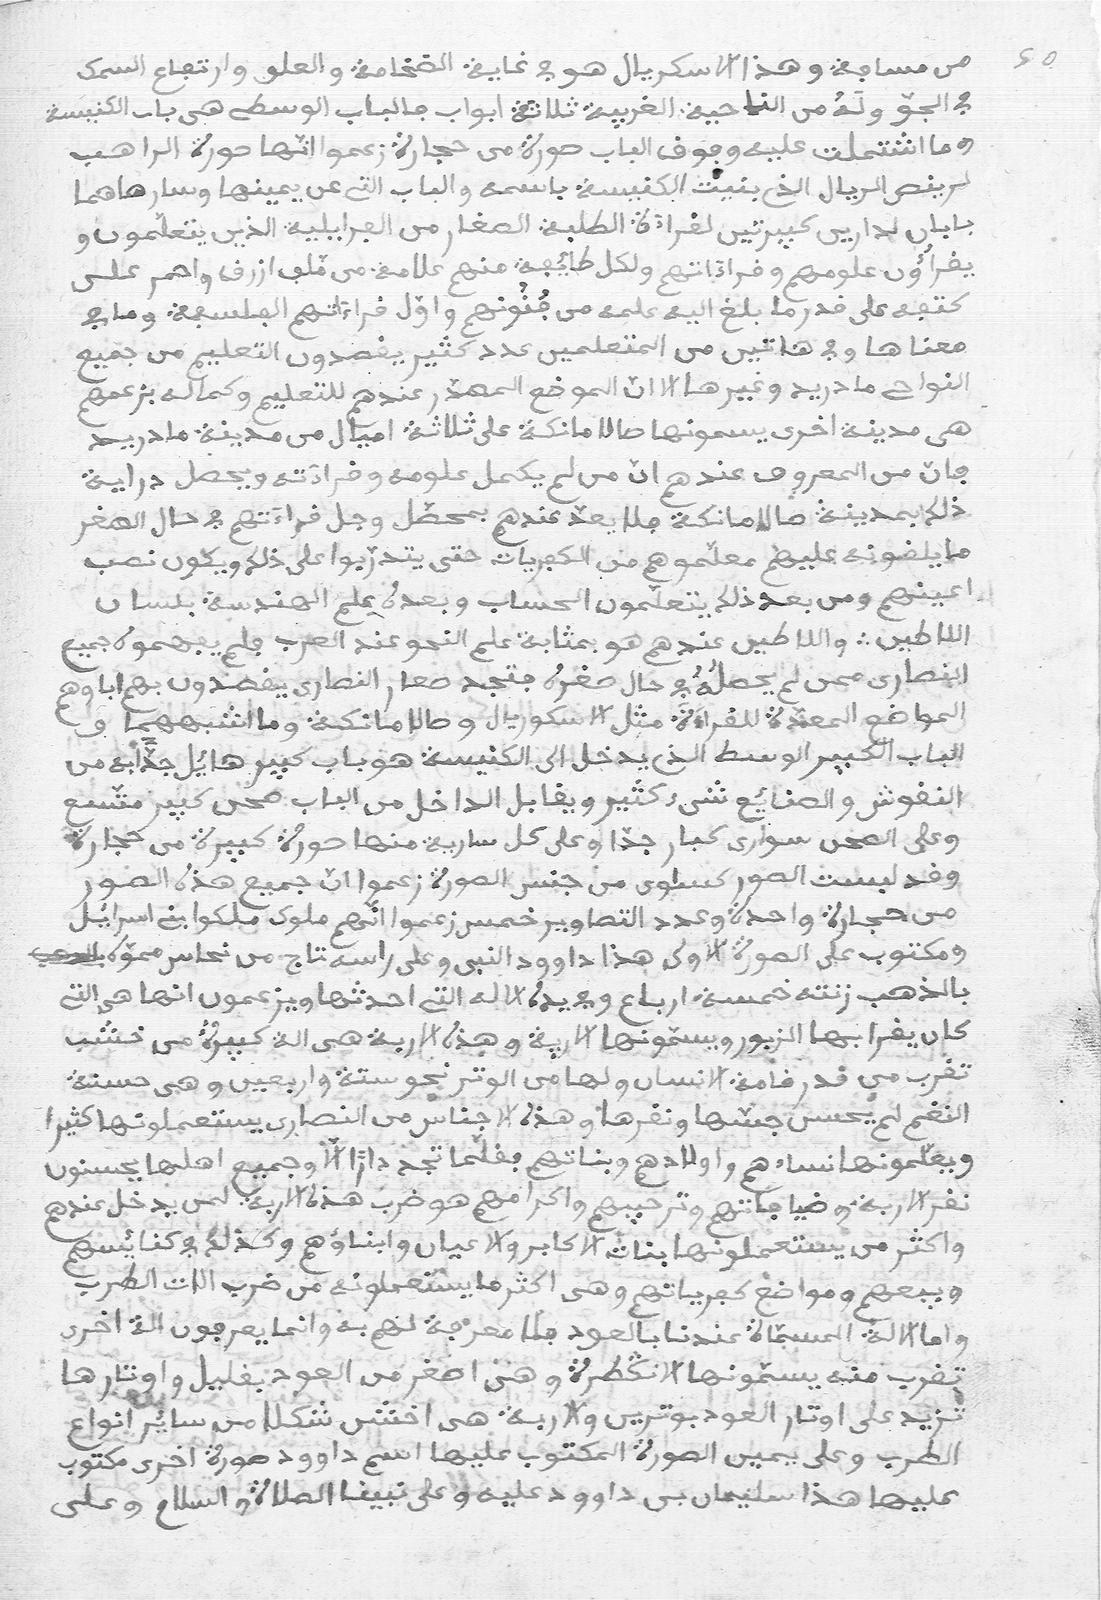 من مسافة وهذا الاسكريال هو في غاية الضخامة والعلو وارتفاع السمك
في الجوّ ولَهُ من الناحية الغربية ثلاثة ابواب فالباب الوسطى هى باب الكنيسة
وما اشتملت عليه وفوق الباب صورة من حجارة زعموا انّها صورة الراهب
لرينص الريال الذى بنيت الكنيسة باسمه والباب التى عن يمينها ويسارها هما
بابان لدارين كبيرتين لقراءة الطلبة الصغار من الفرايلية الذين يتعلّمون و
يقرأون علومهم وقراءاتهم ولكل طائفة منهم علامة من ملف ازرق واحمر على
كتفه على قدر ما بلغ اليه علمه من فُنُونهم واوّل قراءاتهم الفلسفة وما في
معناها وفي هاتين من المتعلمين عدد كثير يقصدون التعليم من جميع
النواحى مادريد وغيرها الا انّ الموضع المصدّر عندهم للتعليم وكماله بزعمهم
هى مدينة اخرى يسمونها صالامانكة على ثلاثة اميال من مدينة مادريد
فانّ من المعروف عندهم انّ من لم يكمل علومه وقراءته ويحصل دراية
ذلك بمدينة صالامانكة فلا يعدّ عندهم بمحصّل وجل قراءتهم في حال الصغر
ما يلقونه عليهم معلّموهم من الكفريات حتى يتدرّبوا على ذلك ويكون نصب
اعينهم ومن بعد ذلك يتعلّمون الحساب وبعده علم الهندسة بلسان
اللاطين والاطين عندهم هو بمثابة علم النحو عند العرب فلم يفهموه جميع
النصارى ممن لم يحصلُهُ في حال صغره فتجد صغار النصارى يقصدون بهم اباوهم
المواضع المعدّة للقراءة مثل الاسكوريال وصالامانكة وما اشبههما و
الباب الكبير الوسط الذى يدخل الى الكنيسة هو باب كبير هايل جدّا به من
النقوش والصنائع شىء كثير ويقابل الداخل من الباب صحن كبير متّسع
وعلى الصحن سوارى كبار جدّا وعلى كل سارية منها صورة كبيرة من حجارة
وقد لبست الصور كساوى من جنس الصورة زعموا انّ جميع هذه الصور
من حجارة واحدة وعدد التصاوير خمس زعموا انّهم ملوك ملكوا بنى اسرائيل
ومكتوب على الصورة الاولى هذا داوود النبى وعلى راسه تاج من نحاس مموّه
بالذهب زنته خمسة ارباع وفي يده الاله التى احدثها ويزعمون انها هى التى
كان يقرا بها الزبور ويسمّونها الاربة وهذه الاربة هى الة كبيرة من خشب
تقرب من قدر قامة الانسان ولها من الوتر نحو ستة واربعين وهى حسنة
النغم لم يحسن جسّها ونقرها وهذه الاجناس من النصارى يستعملونها كثيرا
ويعلّمونها نساءهم واولادهم وبناتهم فقلّما تجد دارًا الّا وجميع اهلها يحسنون
نقر الاربة وضيافاتهم وترحيبهم واكرامهم هو ضرب هذه الاربة لمن يدخل عندهم
واكثر من يستعملونها بنات الاكابر والاعيان وابناؤهم وكذلك في كنائسهم
وبيعهم ومواضع كفرياتهم وهى اكثر ما يستعملونه من ضرب الات الطرب
واما الالة المسمّاة عندنا بالعود فلا معرفة لهم به وانما يعرفون الة اخرى
تقرب منه يسمّونها الانكطرة وهى اصغر من العود بقليل واوتارها
تزيد على اوتار العود بوترين والاربة هى اخشن شكلا من سائر انواع
الطرب وعلى يمين الصورة المكتوب عليها اسم داوود صورة اخرى مكتوب
عليها هذا سليمان بن داوود عليه وعلى نبينا الصلاة والسلام وعلى